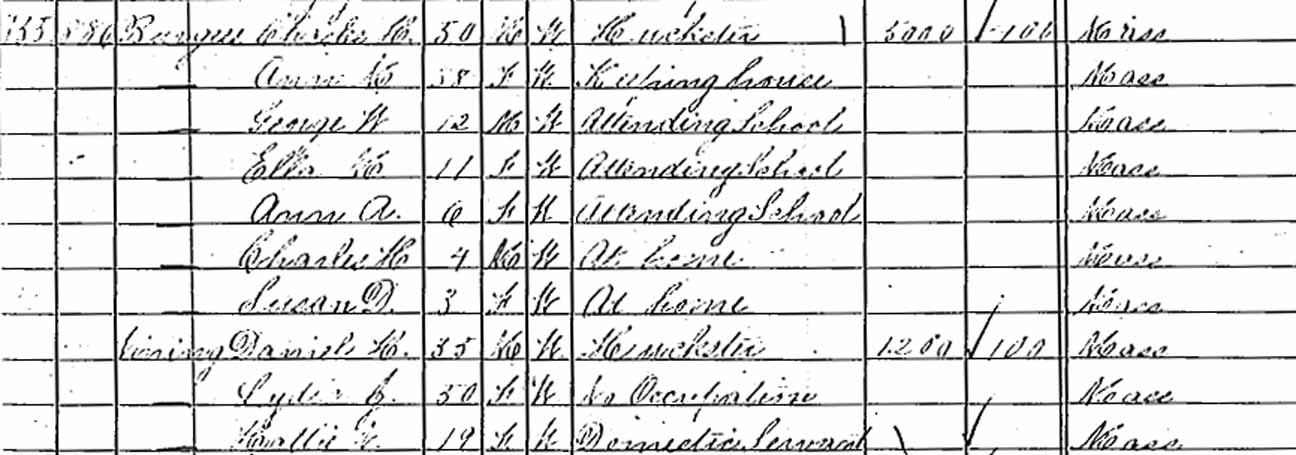 Charles H. 50 M W Huckster 5000 100 Mass
Ann 38 F W Keeping house Mass
George W 12 M W Attending School Mass
Ella 11 F W Attending School Mass
Ann A. 6 F W Attending School Mass
Charles H 4 M W At home Mass
Susan D. 3 F W At home Mass
Daniel H. 35 M W Huckster 1200 100 Mass
Lydia 50 F W No Occupation Mass
19 F W Domestic Servant Mass